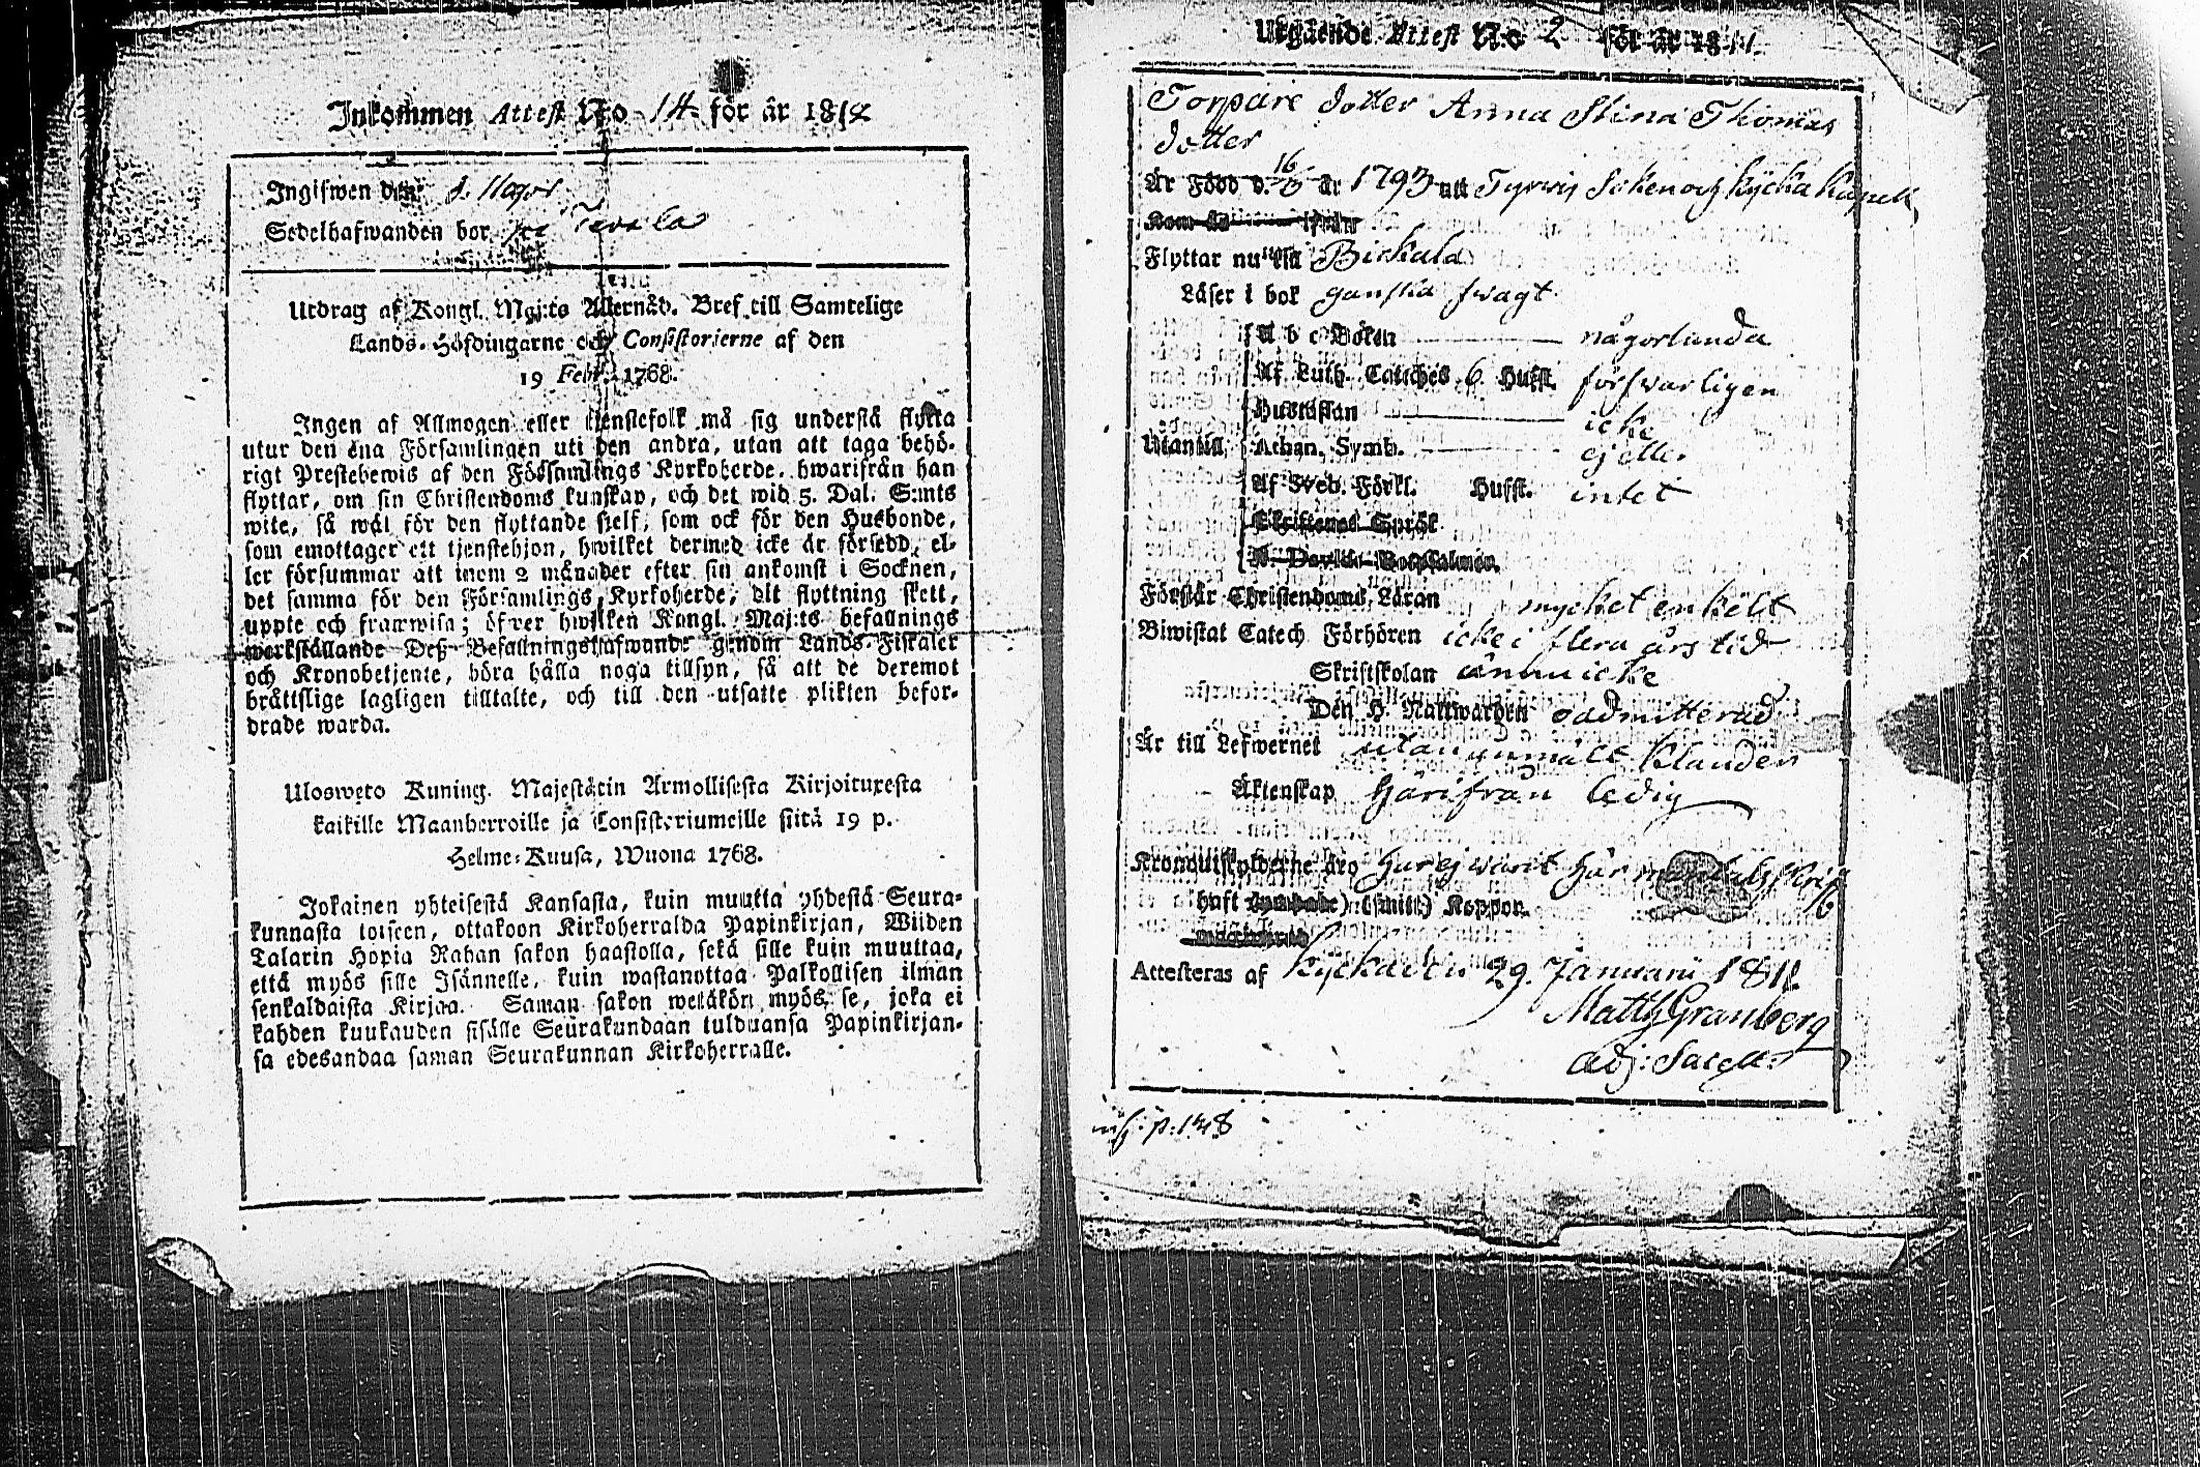 Inkommen Attest No 14 för år 1812
Ingifwen den
Sedelhafwanden bor på
Utdrag af Kongl. Maj:ts Allernåd. Bref till Samtelige
Lands-Höfdingarne och Consistorierne af den
19 Febr. 1768.
Ingen af Allmogen eller tjenstefolk må sig understå flytta
utur den ena Församlingen uti den andra, utan att taga behö-
rigt Prestebewis af den Församlings Kyrkoherde, hwarifrån han
flyttar, om sin Christendoms kunskap, och det wid 5. Dal. S:mts
wite, så wäl för den flyttande sjelf, som ock för den Husbonde,
som emottager ett tjenstehjon, hwilket dermed icke är försedd, el-
ler försummar att inom 2 månader efter sin ankomst i Socknen,
det samma för den Församlings Kyrkoherde, dit flyttning skett,
uppte och framwisa; öfwer hwilken Kongl. Maj:ts befallnings
werkställande Deß Befallningshafwande genom Lands-Fiskaler
och Kronobetjente, böra hålla noga tillsyn, så att de deremot
bråttslige lagligen tilltalte, och till den utsatte plikten befor-
drade warda.
Ulosweto Kuning. Majestätin Armollisesta Kirjoituxesta
kaikille Maanherroille ja Consistoriumeille siitä 19 p.
Helme-Kuusa, Wuona 1768.
Jokainen yhteisestä Kansasta, kuin muutta yhdestä Seura-
kunnasta toiseen, ottakoon Kirkoherralda Papinkirjan, Wiiden
Talarin Hopia Rahan sakon haastolla, sekä sille kuin muuttaa,
että myös sille Isännelle, kuin wastanottaa Palkollisen ilman
senkaldaista Kirjaa. Saman sakon wetäkön myös se, joka ei
kahden kuukauden sisälle Seurakundaan tulduansa Papinkirjan-
sa edesandaa saman Seurakunnan Kirkoherralle.
Utgående Attest No 2 för år 1811.
Torpare dotter Anna Stina Thomas
dotter
År Född d. 16 år 1793 utt Tyrwis Soken och Kycka Kapell
Flyttar nu till Birkala
Läser i bok ganska swagt
A b c Boken någorlunda
Af Luth. Catiches 6 Hufst. förswarligen
Hustaflan icke
Utantill Athan. Symb. ej eller
Af Sveb. Förkl. Hufst. intet
Skriftenes Språk
K. Davids Botpsalmer.
Förstår Christendoms Läran mycket enkelt
Biwistat Catech Förhören icke i flera års tid
Skriftskolan ännu icke
Den H. Nattwarden oadmitterad
År till Lefwernet utan anmält klander
Äktenskap härifrån ledig
Kronoutskylderne äro har ej warit här mantals skrif
haft (smitt) Koppor.
Attesteras af Kycka den 29. Januarii 1811.
Matth Granberg
Adj: Sacell:
p. 148